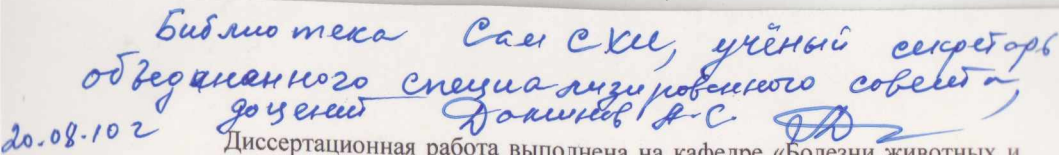 Библиотека Сам СХИ, учёный секретарь
объединанного специализированного совета,
доцент А.С.
20.08.10 г
Диссертационная работа выполнена на кафедре «Болезни животных и